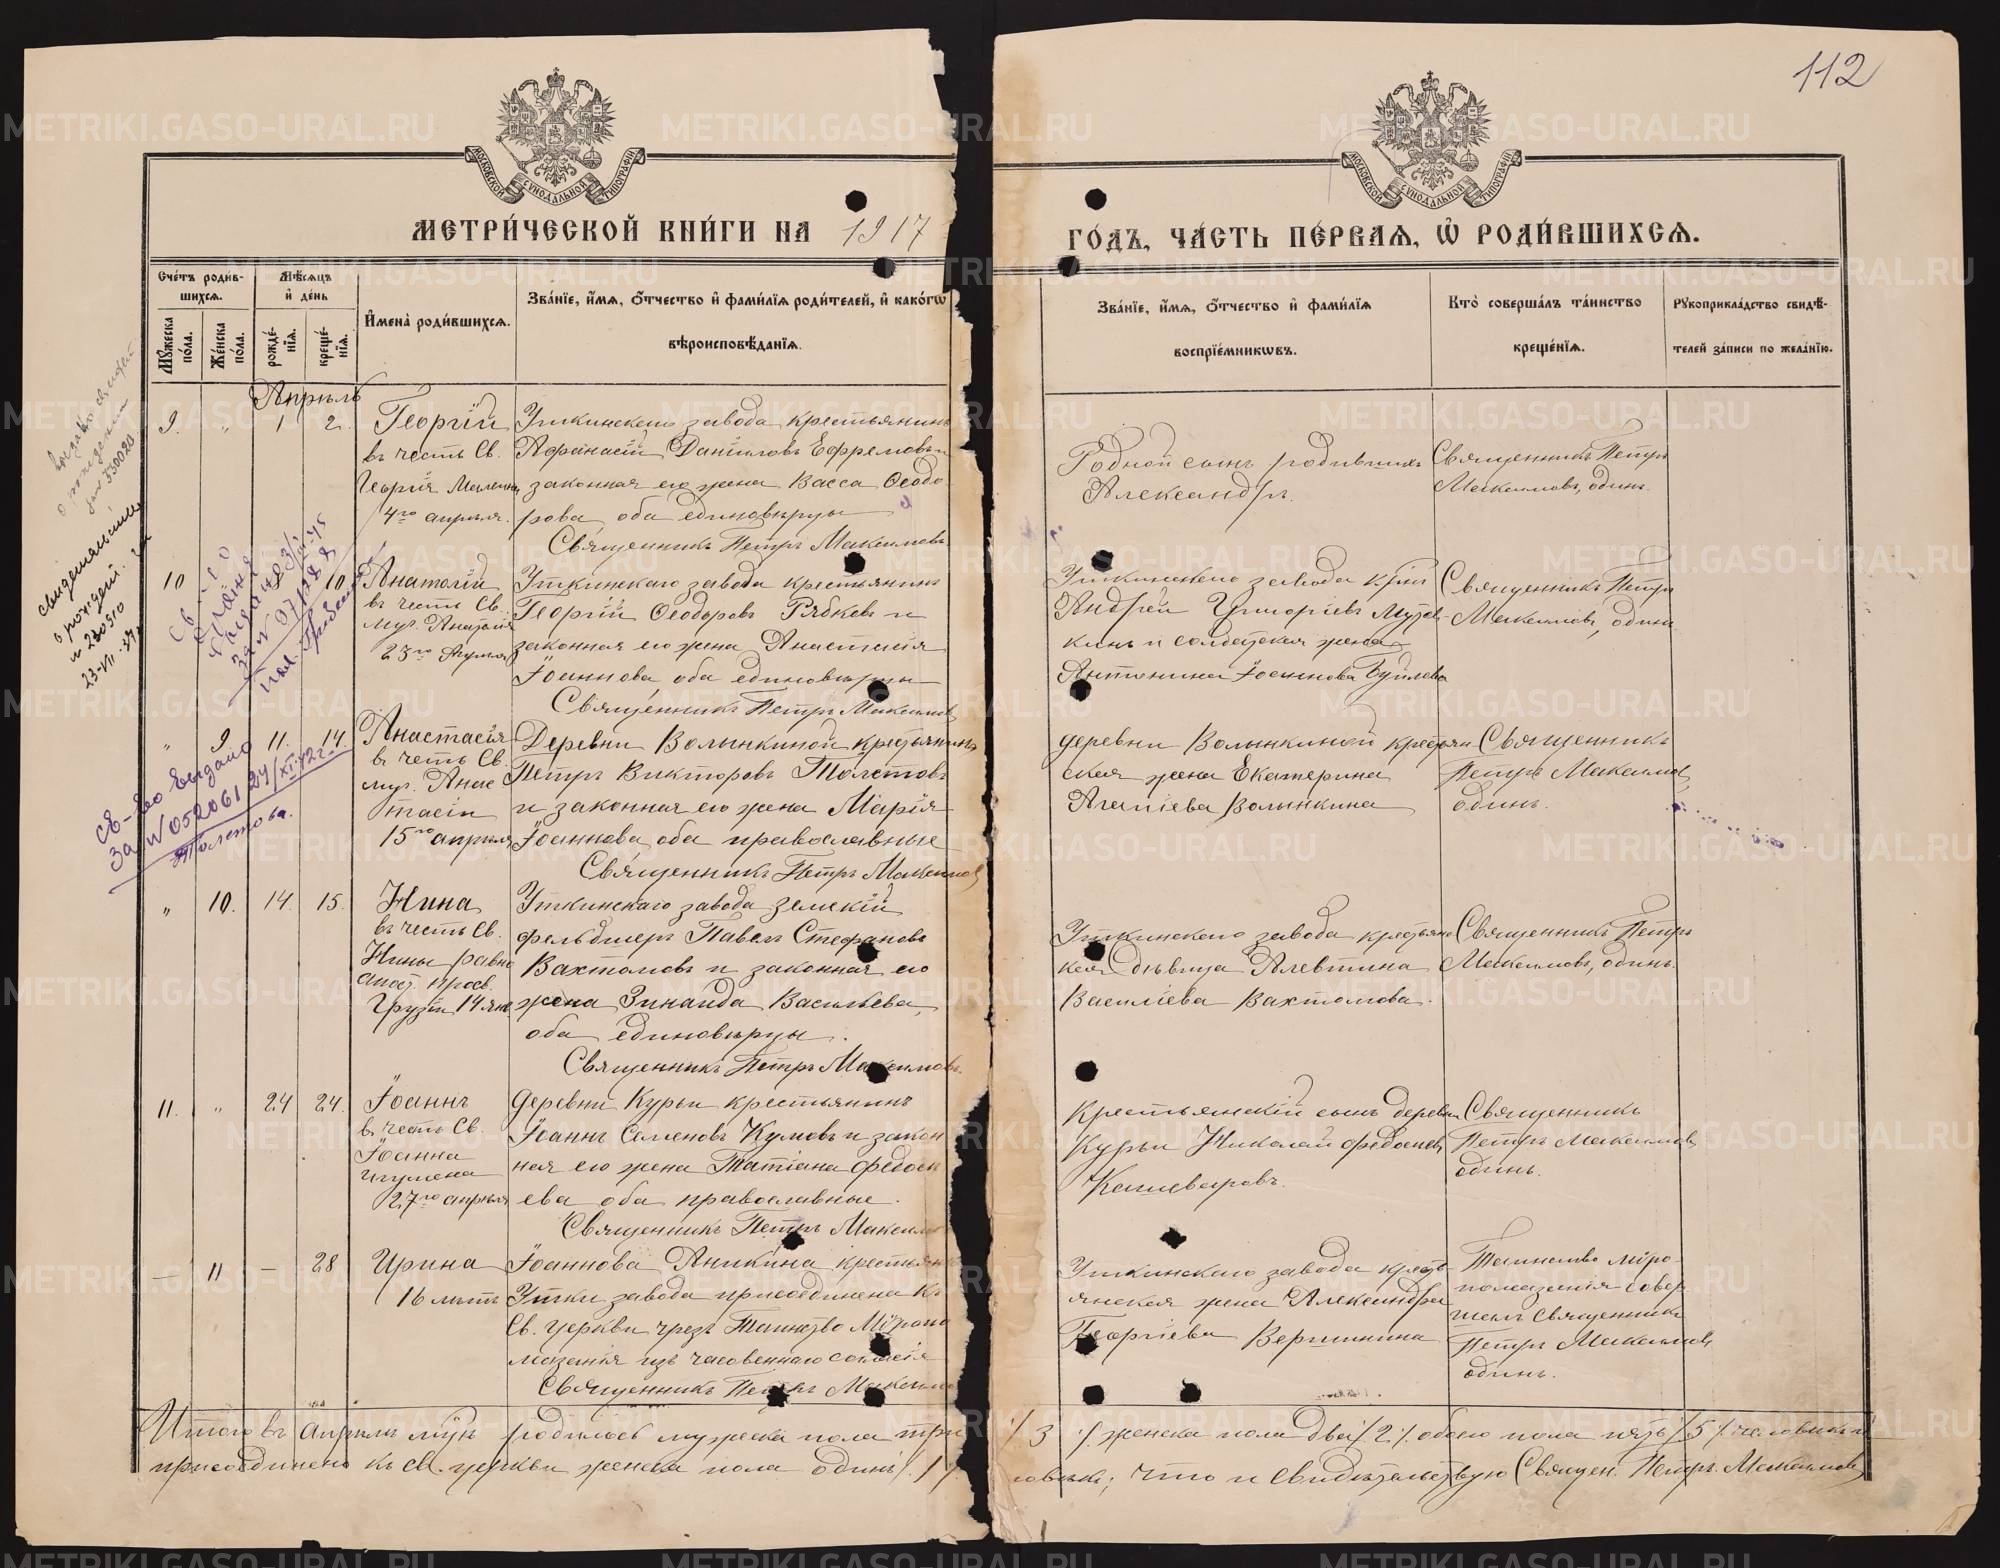 112
МОСКОВСКОЙ СѴНОДАЛЬНОЙ ТИПОГРАФІИ
МОСКОВСКОЙ СѴНОДАЛЬНОЙ ТИПОГРАФІИ
МЕТРИ́ЧЕСКОЙ КНИ́ГИ НА 1917
ГО́ДЪ, ЧА́СТЬ ПЕ́РВАЯ, Ѡ҆ РОДИ́ВШИХСЯ.
Сче́тъ роди́в-
шихся.
Мѣ́сяцъ
и҆ де́нь
Мꙋ́жеска по́ла.
Же́нска по́ла.
рожде́-
нїя.
креще́-
нїя.
И҆мена̀ роди́вшихся.
Зва́нїе, и҆́мя, ѻ҆́тчество и҆ фами́лїя роди́телей, и҆ како́гѡ
вѣроисповѣ́данїя.
Зва́нїе, и҆́мя, ѻ҆́тчество и҆ фами́лїя
воспрїе́мникѡвъ.
Кто̀ соверша́лъ та́инство
креще́нїя.
Рꙋкоприкла́дство свидѣ́-
телей за́писи по жела́нїю.
Апрѣль
9. " 1 2. Георгій
въ честь Св.
Георгія
4го апрѣля.
Уткинскаго завода крестьянинъ
Афанасій Даниловъ Ефремовъ и
законная его жена Васса Ѳеодо
рова оба единовѣрцы
Священникъ Петръ Максимовъ
Родной сынъ родившихъ
Александръ.
Священникъ Петръ
Максимовъ, одинъ.
10 10. Анатолій
въ честь Св.
муч. Анатолія
23го Апрѣля
Уткинскаго завода крестьянинъ
Георгій Ѳеодоровъ Рябковъ и
законная его жена Анастасія
Іоаннова оба единовѣрцы
Священникъ Петръ Максимов
Уткинскаго завода
Андрей Григоріевъ
кинъ и солдатская жена
Антонина Іоаннова
Священникъ Петръ
Максимовъ, одинъ
" 9 11. 14. Анастасія
въ честь Св.
муч. Анас
тасіи
15го апрѣля
Деревни Волынкиной крестьянинъ
Петръ Викторовъ Толстовъ
и законная его жена Марія
Іоаннова оба православные
Священникъ Петръ Максимов
деревни Волынкиной крестьян
ская жена Екатерина
Агапіева Волынкина
Священникъ
Петръ Максимов
одинъ.
" 10. 14. 15. Нина
въ честь Св.
Нины равно
апост. просв.
Грузіи 14 янв.
Уткинскаго завода земскій
фельдшеръ Павелъ Стефановъ
Вахтомовъ и законная его
жена Зинаида Васильева,
оба единовѣрцы.
Священникъ Петръ Максимовъ.
Уткинскаго завода крестьянс
кая дѣвица Алевтина
Василіева Вахтомова.
Священникъ Петръ
Максимовъ, одинъ.
11. " 24 24. Іоаннъ
въ честь Св.
Іоанна
игумена
27го апрѣля
деревни Курьи крестьянинъ
Іоаннъ Семеновъ Кумовъ и закон
ная его жена Татіана Ѳедось
ева оба православные.
Священникъ Петръ Максимо
Крестьянскій сынъ деревни
Курьи Николай
Кашеваровъ.
Священникъ
Петръ Максимов
одинъ.
— 11 — 28 Ирина
16 лѣтъ
Іоаннова Аникина крестьянка
Утки завода присоединена къ
Св. церкви чрезъ Таинство Мѵропо
мазанія изъ часовеннаго согласія
Священникъ Петръ Максимо
Уткинскаго завода кресть
янская жена Александра
Георгіева Вершинина
Таинство мѵро-
помазанія совер
шалъ священникъ
Петръ Максимов
одинъ.
Итого въ апрѣлѣ м-цѣ родилось мужеска пола три /3/ женска пола два /2/ обоего пола пять /5/ человѣкъ и
присоединено къ св. церкви женска пола одинъ /1/ ловѣкъ; что и свидѣтельствую Священ. Петръ Максимов
о рождении
свидетельство
о рожден.
23-VII-
Св-во выдано
за № 052061 24/XI-42г.
Толстова.
METRIKI.GASO-URAL.RU